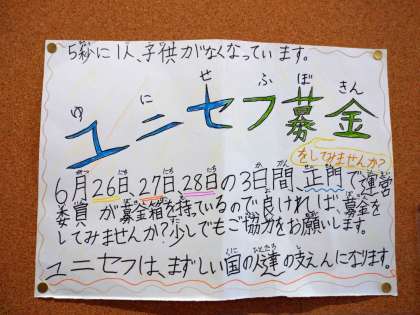 5秒に1人、子供がなくなっています。
ユニセフ募金
をしてみませんか?
6月26日、27日、28日の3日間、正門で運営
委員が募金箱を持っているので良ければ募金を
してみませんか?少しでもご協力をお願いします。
ユニセフは、まずしい国の人達の支えんになります。